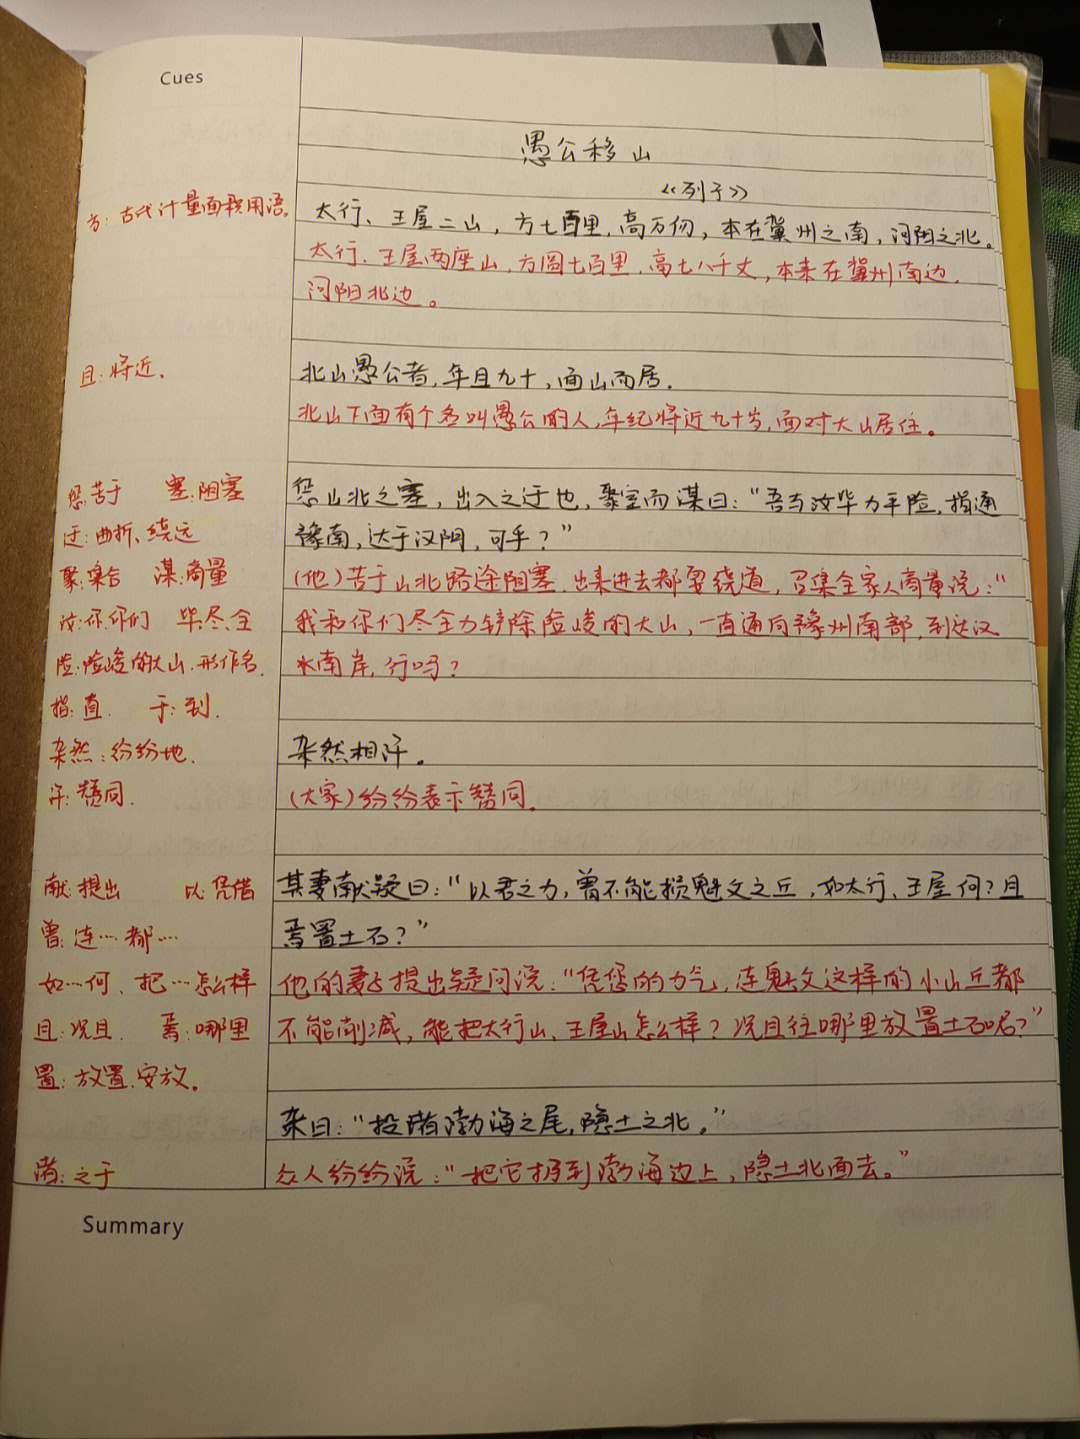 Cues
愚公移山
《列子》
方：古代计量面积用语。
太行、王屋二山，方七百里，高万仞，本在冀州之南，河阳之北。
太行、王屋两座山，方圆七百里，高七八千丈，本来在冀州南边，
河阳北边。
且：将近。
北山愚公者，年且九十，面山而居。
北山下面有个名叫愚公的人，年纪将近九十岁，面对大山居住。
惩：苦于 塞：阻塞
惩山北之塞，出入之迂也，聚室而谋曰："吾与汝毕力平险，指通
迂：曲折、绕远
豫南，达于汉阴，可乎？"
聚：集合 谋：商量
(他)苦于山北路途阻塞，出来进去都要绕道，召集全家人商量说："
汝：你，你们 毕：尽、全
我和你们尽全力铲除险峻的大山，一直通向豫州南部，到达汉
险：险峻的大山，形作名。
水南岸，行吗？
指：直 于：到。
杂然：纷纷地。
杂然相许。
许：赞同。
(大家)纷纷表示赞同。
献：提出 以：凭借
其妻献疑曰："以君之力，曾不能损魁父之丘，如太行、王屋何？且
曾：连…都…
焉置土石？"
如…何：把…怎么样
他的妻子提出疑问说："凭您的力气，连魁父这样的小山丘都
且：况且 焉：哪里
不能削减，能把太行山、王屋山怎么样？况且往哪里放置土石呢？"
置：放置、安放。
杂曰："投诸渤海之尾，隐土之北。"
诸：之于
众人纷纷说："把它扔到渤海边上，隐土北面去。"
Summary